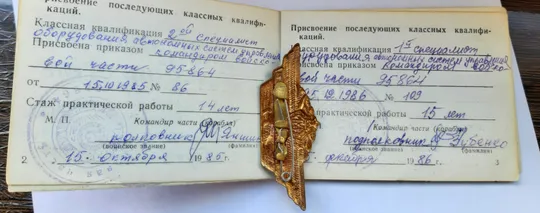 Присвоение последующих классных квалифи-
каций.
Классная квалификация 2ой специалист
оборудования автономных систем управления
Присвоена приказом командиром войско-
вой части 95864
от 15.10.1985 № 86
Стаж практической работы 14 лет
М. П. Командир части (корабля)
полковник
(воинское звание) (фамилия)
2 „15" октября 1985 г.
Присвоение последующих классных квалифи-
каций.
Классная квалификация 1й специалист
автономных систем управления
Присвоена приказом командиром войско-
вой части 95864
10.1986 № 109
Стаж практической работы 15 лет
Командир части (корабля)
подполковник
(воинское звание) (фамилия)
1986 г. 3